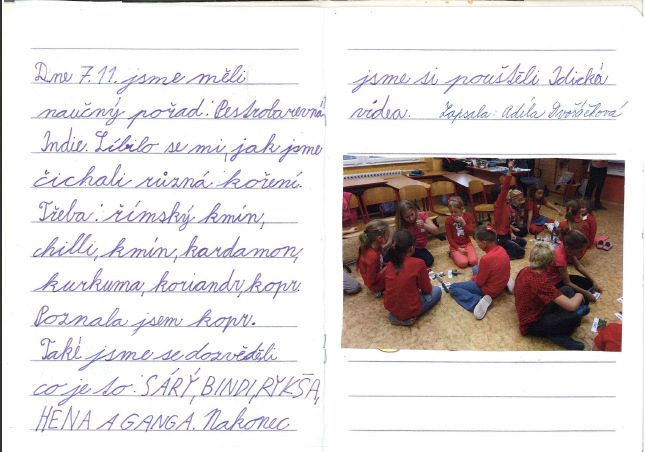 Dne 7.11. jsme měli
naučný pořad: Pestrobarevná
Indie. Líbilo se mi jak jsme
čichali různá koření.
Třeba: římský kmín,
chilli, kmín, kardamon,
kurkuma, koriandr, kopr.
Poznala jsem kopr.
Také jsme se dozvěděli
co je to: SÁRÝ, BINDI, RYKŠA,
HENA A GANGA. Nakonec
jsme si pouštěli Idická
videa. Zapsala: Adéla Dvořáčková